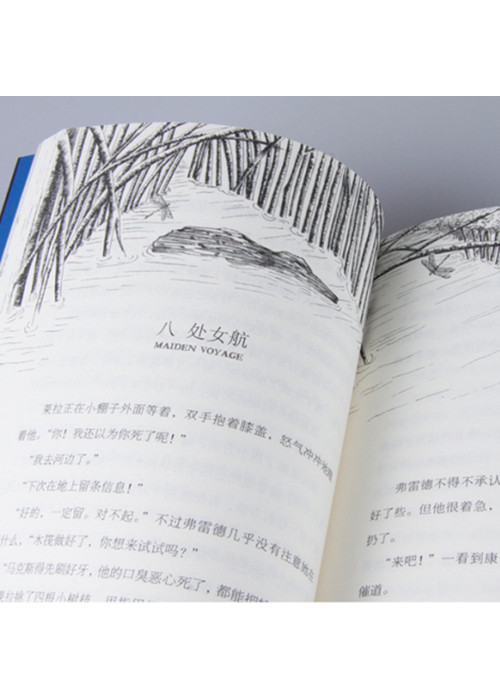 八 处女航
MAIDEN VOYAGE
莱拉正在小棚子外面等着，双手抱着膝盖，怒气冲冲地
看他。“你！我还以为你死了呢！”
“我去河边了。”
“下次在地上留条信息！”
“好的，一定留。对不起。”不过弗雷德几乎没有注意她在
什么，“水筏做好了，你想来试试吗？”
“马克斯得先刷好牙，他的口臭恶心死了，都能把
弗雷德不得不承认
好了些。但他很着急，
扔了。
“来吧！”一看到康
催道。